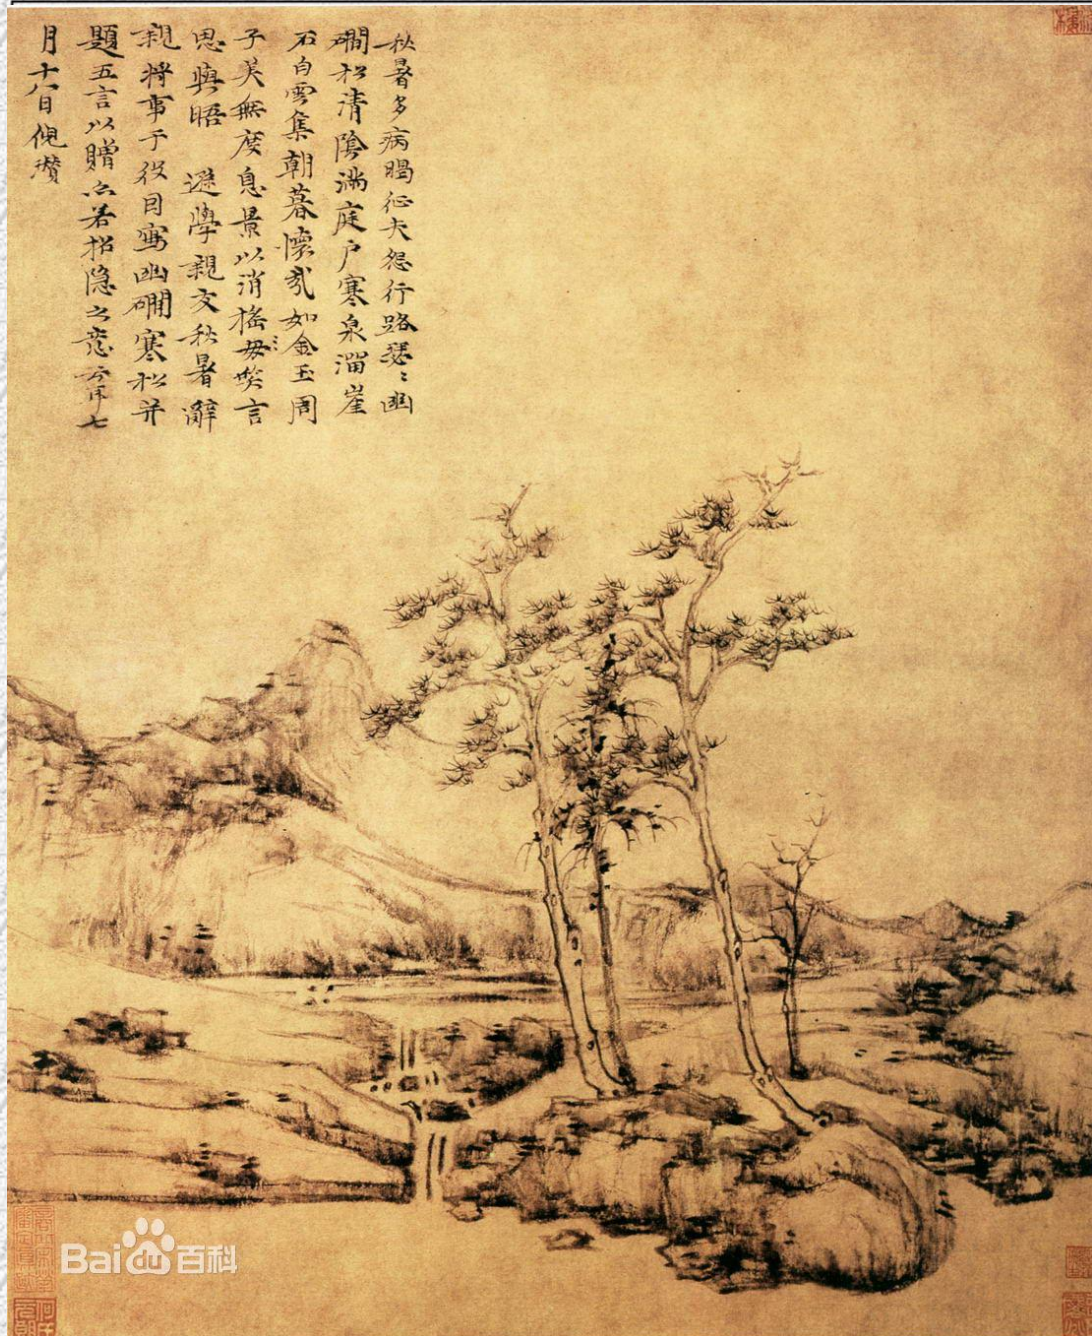 秋暑多病暍征夫怨行路瑟〻幽
磵松清陰滿庭戶寒泉溜崖
石白雲集朝暮懷哉如金玉周
子美無度息景以消搖毋𥬇言
思與晤 遜學親友秋暑辭
親將事于役因寫幽磵寒松并
題五言以贈亦若招隱之意云耳七
月十八日倪瓚
Baidu百科